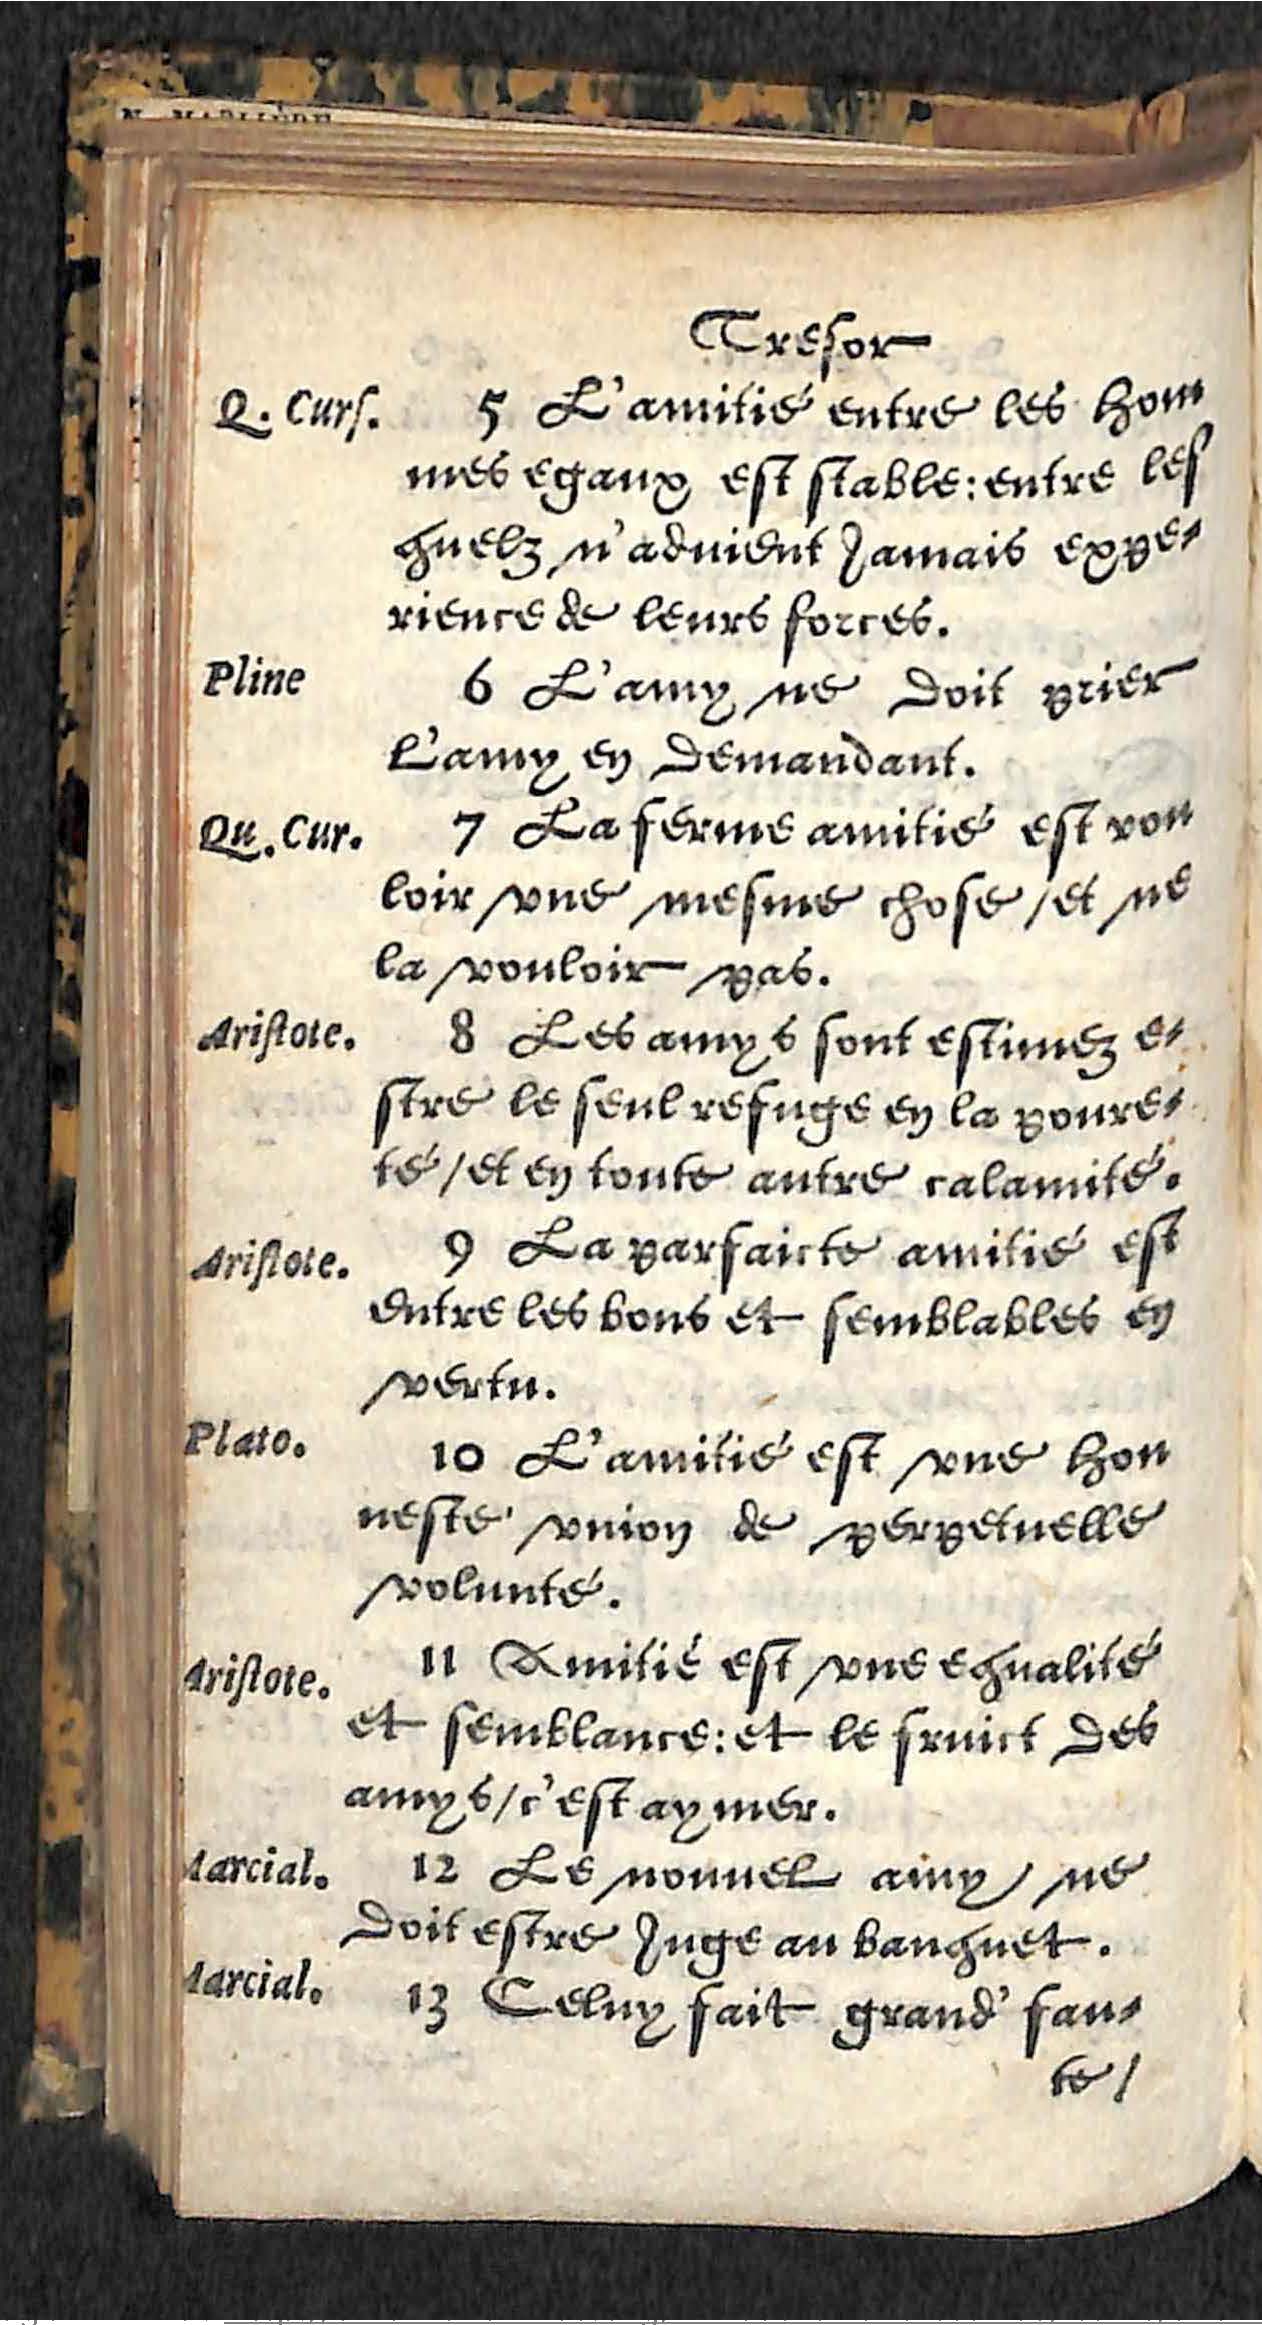 Tresor
Q. Curs. 5 L'amitié entre les hom
mes egaux est stable: entre les
quelz n'aduient Jamais expe-
rience de leurs forces.
Pline 6 L'amy ne doit prier
l'amy en demandant.
Qu. Cur. 7 La ferme amitié est vou
loir vne mesme chose / et ne
la vouloir pas.
Aristote. 8 Les amys sont estimez e-
stre le seul refuge en la poure-
té / et en toute autre calamité.
Aristote. 9 La parfaicte amitié est
entre les bons et semblables en
vertu.
Plato. 10 L'amitié est vne hon
neste vnion de perpetuelle
volunté.
Aristote. 11 Amitié est vne equalité
et semblance: et le fruict des
amys / c'est aymer.
Marcial. 12 Le nouuel amy ne
doit estre Juge au banquet.
Marcial. 13 Celuy fait grand' fau-
te /